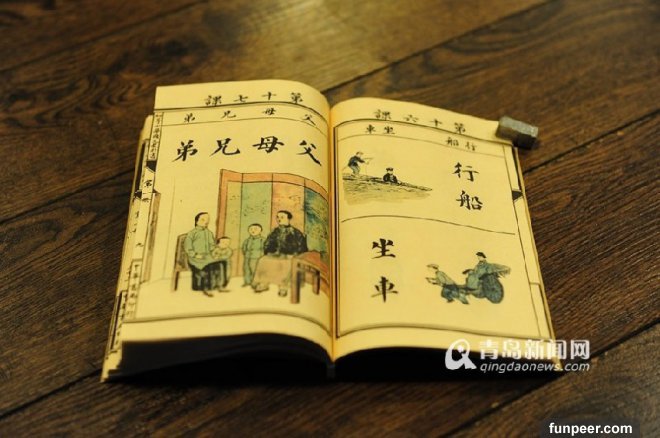 第十六課
行船 坐車
行船
坐車
第十七課
父母兄弟
父母兄弟
青岛新闻网
qingdaonews.com
funpeer.com